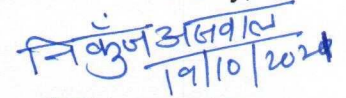 निकुँज अलवाल
19/10/2021